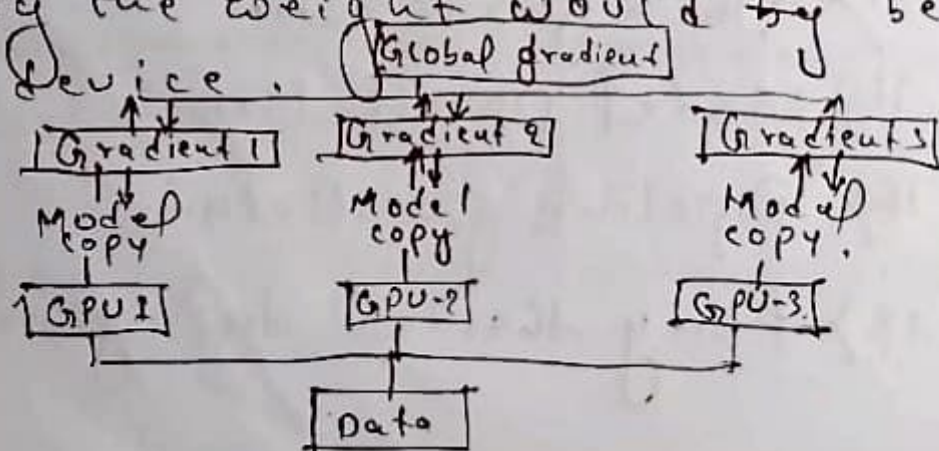 the weight would be
device. Global gradient
Gradient 1 Gradient 2 Gradient 3
Model Model Model
copy copy copy.
GPU 1 GPU-2 GPU-3.
Data